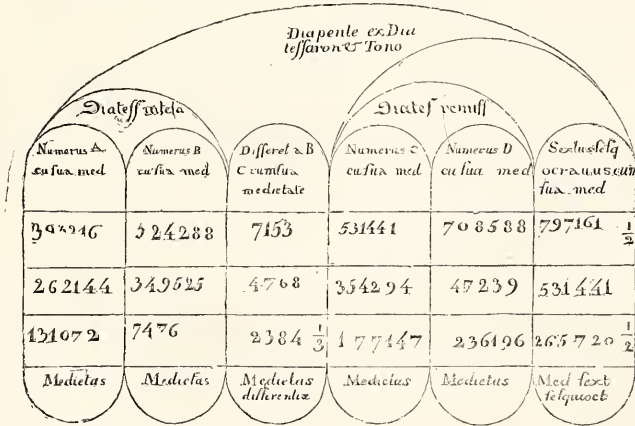 Diapente ex Dia
tessaron & Tono
Diatess intesa
Diatess remiss
Numerus A
cu sua med
Numerus B
cu sua med
Differet a B
C cum sua
medietate
Numerus C
cu sua med
Numerus D
cu sua med
Sextus sesq
octauus cum
sua med
524288
7153
531441
708588
797161 1/2
262144
349525
4768
354294
47239
531441
131072
7476
2384 1/3
177147
236196
265720 1/2
Medietas
Medietas
Medietas
differentiæ
Medietas
Medietas
Med sext
sesquioct